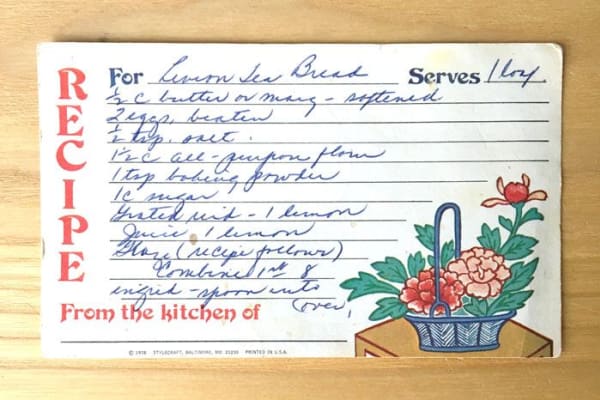 RECIPE
For Lemon Tea Bread Serves 1 loaf
1/2 c butter or marg - softened
2 eggs, beaten
1/2 tsp. salt.
1 1/2 c all-purpose flour
1 tsp baking powder
1c sugar
Grated rind - 1 lemon
Juice 1 lemon
Glaze (recipe follows)
Combine 1st 8
ingred - spoon into
(over)
From the kitchen of
© 1978 STYLECRAFT, BALTIMORE, MD 21230 PRINTED IN U.S.A.